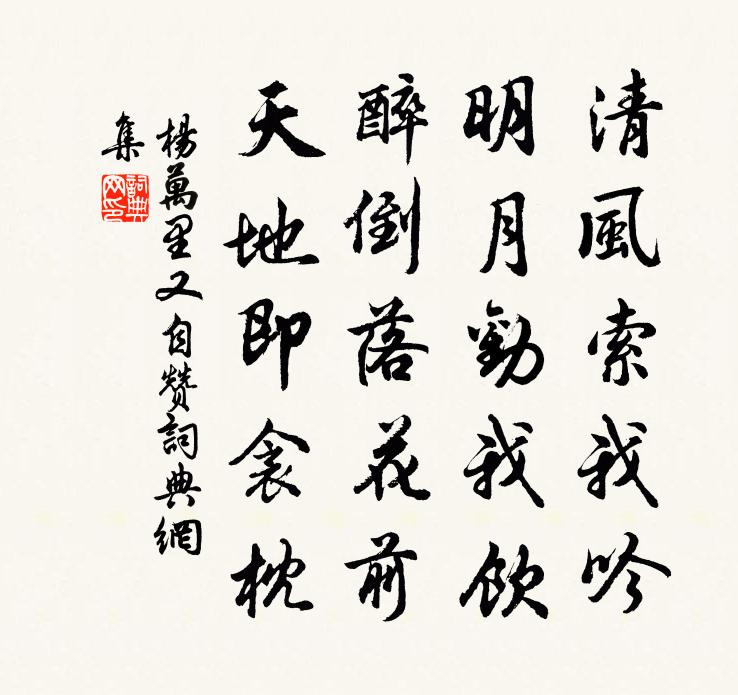 清風索我吟
明月勸我飲
醉倒落花前
天地即衾枕
楊萬里又自赞詞典網
集
詞典网印